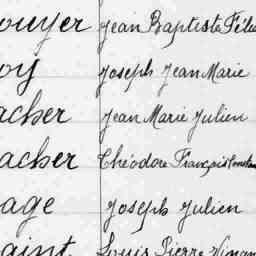 ouyer Jean Baptiste Féli
oy Joseph Jean Marie
acher Jean Marie Julien
acher Théodore François Constan
age Joseph Julien
aint Louis Pierre